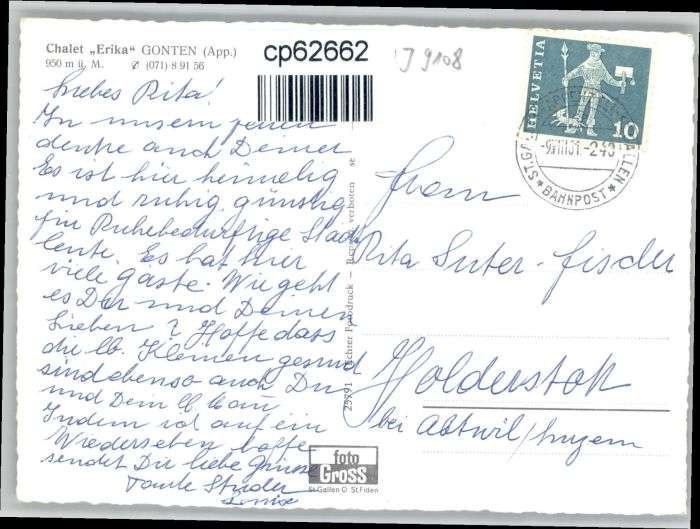 Chalet „Erika" GONTEN (App.)
950 m ü. M. ✆ (071) 8 91 56
cp62662
J 9108
HELVETIA
10
ST. GALLEN
BAHNPOST
Liebes Rita!
In unserm
denke auch Deiner
Es ist hier heimelig
und ruhig, günstig
für Ruhebedürftige Stadt
leute. Es hat hier
viele Gäste. Wie geht
es Dir und Deinen
Lieben? Hoffe dass
die lb. Kleinen gesund
sind ebenso auch Du
und Dein lb.
Indem ich auf ein
Wiedersehen hoffe
sendet Dir liebe Grüsse
Tante Studer
Frau
Rita Suter-Fischer
Holderstok
bei Abtwil/Luzern
25791 Fotodruck verboten
foto
GROSS
St.Gallen O St.Fiden